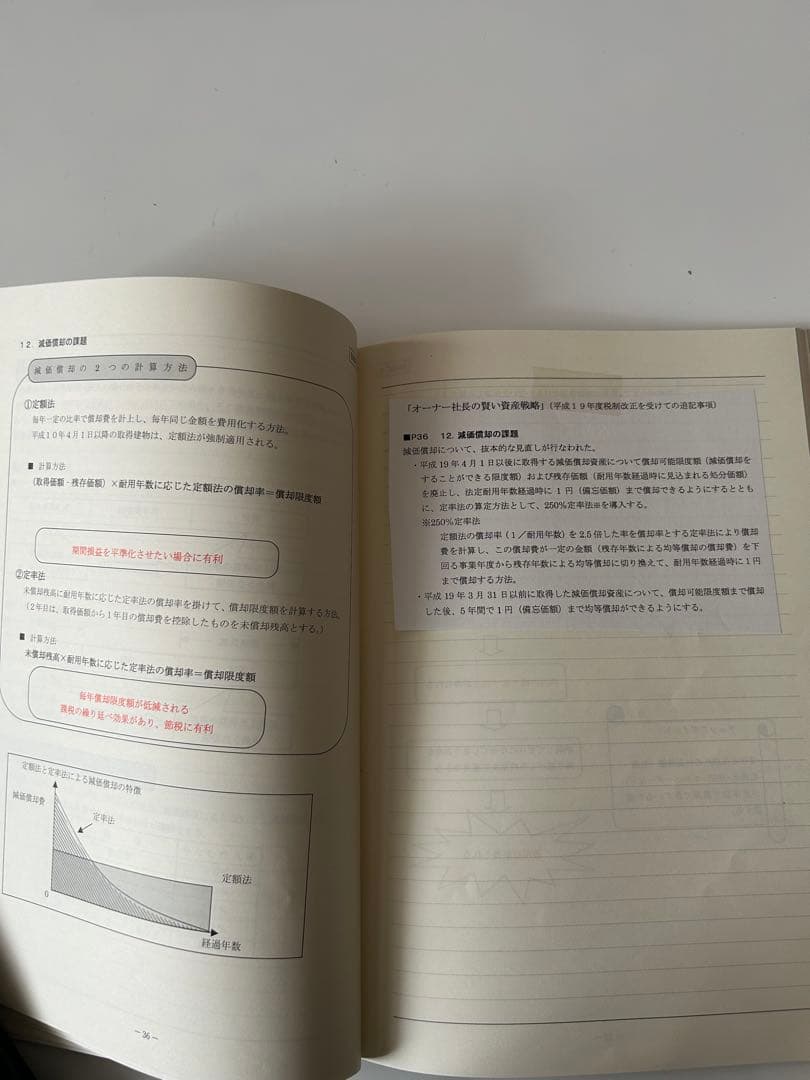 12. 減価償却の課題
減価償却の2つの計算方法
①定額法
毎年一定の比率で償却費を計上し、毎年同じ金額を費用化する方法。
平成10年4月1日以降の取得建物は、定額法が強制適用される。
■ 計算方法
(取得価額-残存価額)×耐用年数に応じた定額法の償却率=償却限度額
期間損益を平準化させたい場合に有利
②定率法
未償却残高に耐用年数に応じた定率法の償却率を掛けて、償却限度額を計算する方法。
(2年目は、取得価額から1年目の償却費を控除したものを未償却残高とする。)
■ 計算方法
未償却残高×耐用年数に応じた定率法の償却率=償却限度額
毎年償却限度額が低減される
課税の繰り延べ効果があり、節税に有利
定額法と定率法による減価償却の特徴
減価償却費
定率法
定額法
0
経過年数
-36-
「オーナー社長の賢い資産戦略」(平成19年度税制改正を受けての追記事項)
■P36 12. 減価償却の課題
減価償却について、抜本的な見直しが行なわれた。
・平成19年4月1日以後に取得する減価償却資産について償却可能限度額(減価償却を
することができる限度額)および残存価額(耐用年数経過時に見込まれる処分価額)
を廃止し、法定耐用年数経過時に1円(備忘価額)まで償却できるようにするととも
に、定率法の算定方法として、250%定率法※を導入する。
※250%定率法
定額法の償却率(1/耐用年数)を2.5倍した率を償却率とする定率法により償却
費を計算し、この償却費が一定の金額(残存年数による均等償却の償却費)を下
回る事業年度から残存年数による均等償却に切り換えて、耐用年数経過時に1円
まで償却する方法。
・平成19年3月31日以前に取得した減価償却資産について、償却可能限度額まで償却
した後、5年間で1円(備忘価額)まで均等償却ができるようにする。